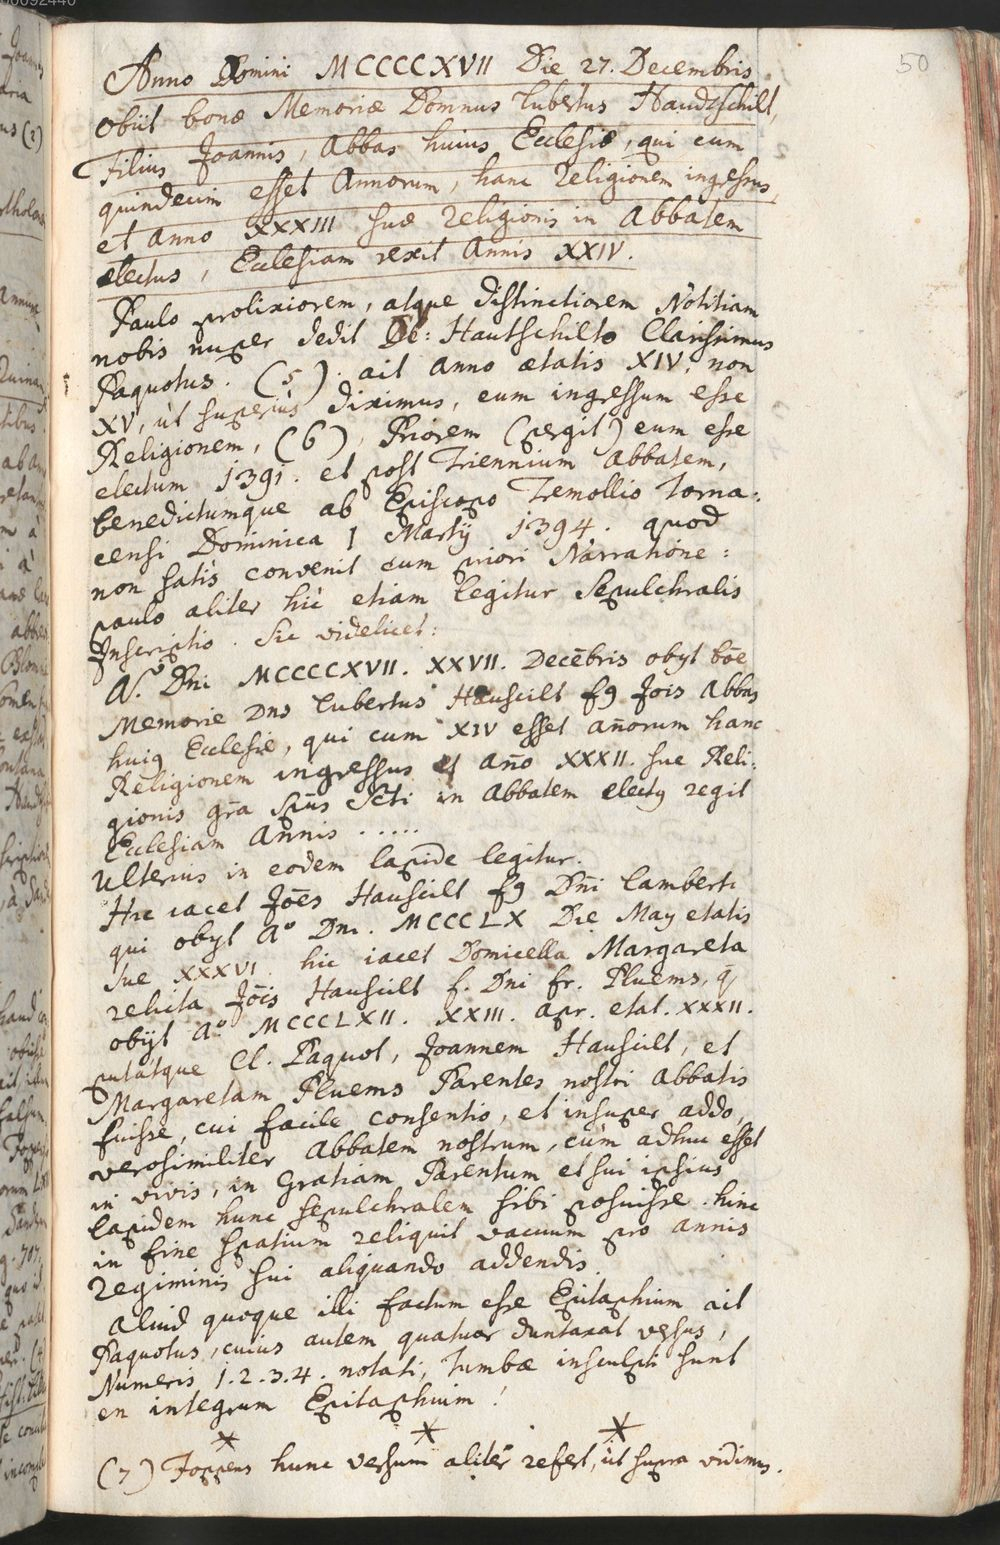 50
Anno Domini MCCCCXVII Die 27. Decembris
obiit bonæ Memoriæ Domnus Lubertus Haudtschilt,
Filius Joannis, Abbas huius Ecclesiæ, qui cum
quindecim esset Annorum, hanc Religionem ingressus,
et anno XXXIII suæ Religionis in Abbatem
electus, Ecclesiam rexit Annis XXIV.
Paulo prolixiorem, atque distinctiorem Notitiam
nobis nuper dedit De: Hautschilto Clarissimus
Paquotus. (5). ait anno ætatis XIV, non
XV, ut superius diximus, eum ingressum esse
Religionem, (6), Priorem (pergit) eum esse
electum 1391. et post Triennium Abbatem,
benedictumque ab Episcopo Tremollio Torna:
censi Dominica 1 Martij 1394. quod
non satis convenit cum priori Narratione:
paulo aliter hic etiam legitur Sepulchralis
Inscriptio. Sic videlicet:
A.o Dni MCCCCXVII. XXVII. Decēbris obyt bōe
Memorie Dns Lubertus Hauscilt f9 Jois Abbas
hui9 Ecclesie, qui cum XIV esset añorum hanc
Religionem ingressus et año XXXII. sue Reli:
gionis gr̄a Sp̄us Sc̄ti in Abbatem elect9 regit
Ecclesiam Annis .....
Ulterius in eodem lapide legitur.
Hic iacet Jōes Hauscilt f9 Dn̄i Lamberti
qui obyt Ao Dni. MCCCLX Die May etatis
sue XXXVI. hic iacet Domicella Margareta
relicta Jōis Hauscilt f. Dni fr. Pluems, q̄
obijt Ao MCCCLXII. XXIII. Apr. etat. XXXII.
putatque Cl. Paquot, Joannem Hauscilt, et
Margaretam Pluems Parentes nostri Abbatis
fuisse, cui facile consentio, et insuper addo,
verosimiliter Abbatem nostrum, cùm adhuc esset
in vivis, in Gratiam Parentum et sui ipsius
lapidem hunc sepulchralem sibi posuisse. hinc
in fine spatium reliquit vacuum pro annis
regiminis sui aliquando addendis.
Aliud quoque illi factum esse Epitaphium ait
Paquotus, cuius autem quatuor duntaxat versus,
Numeris 1.2.3.4. notati, Tumbæ insculpti sunt
en integrum Epitaphium!
* * *
(7) Foppens hunc versum aliter refert, ut supra vidimus.